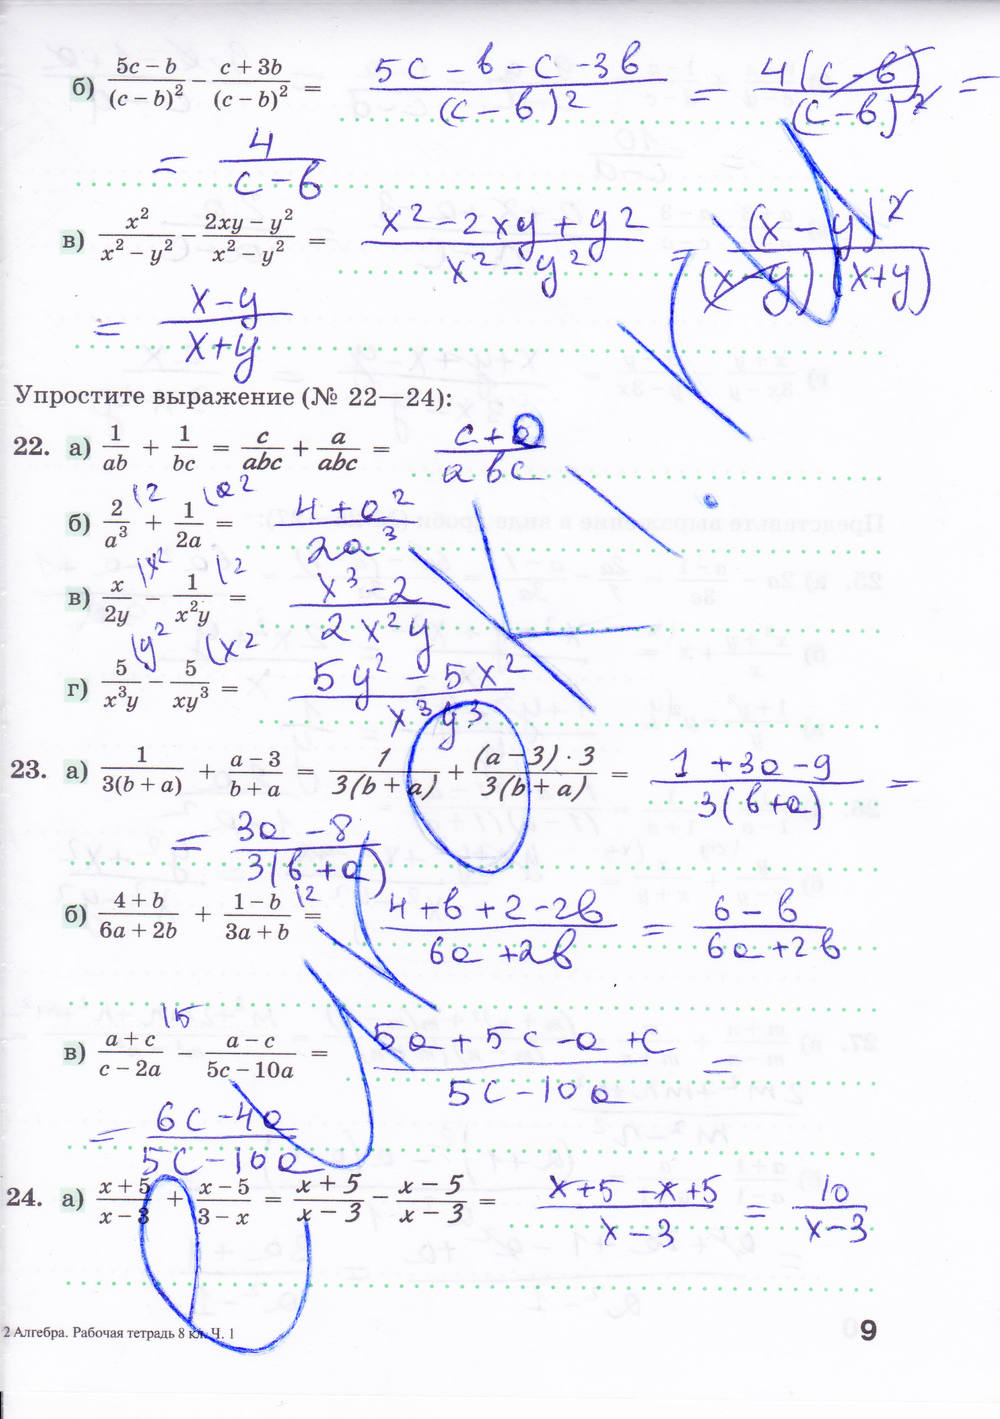 б) (5c − b)/(c − b)² − (c + 3b)/(c − b)² = (5c − b − c − 3b)/(c − b)² = 4(c − b)/(c − b)² =
= 4/(c − b)
в) x²/(x² − y²) − (2xy − y²)/(x² − y²) = (x² − 2xy + y²)/(x² − y²) = (x − y)²/((x − y)(x + y))
= (x − y)/(x + y)
Упростите выражение (№ 22—24):
22. а) 1/ab + 1/bc = c/abc + a/abc = (c + a)/abc
б) 2/a³ \2 + 1/2a \a² = (4 + a²)/2a³
в) x/2y \x² − 1/x²y \2 = (x³ − 2)/2x²y
г) 5/x³y \y² − 5/xy³ \x² = (5y² − 5x²)/x³y³
23. а) 1/3(b + a) + (a − 3)/(b + a) = 1/3(b + a) + (a − 3) · 3/3(b + a) = (1 + 3a − 9)/3(b + a) =
= (3a − 8)/3(b + a)
б) (4 + b)/(6a + 2b) + (1 − b)/(3a + b) \2 = (4 + b + 2 − 2b)/(6a + 2b) = (6 − b)/(6a + 2b)
в) (a + c)/(c − 2a) \5 − (a − c)/(5c − 10a) = (5a + 5c − a + c)/(5c − 10a) =
= (6c − 4a)/(5c − 10a)
24. а) (x + 5)/(x − 3) + (x − 5)/(3 − x) = (x + 5)/(x − 3) − (x − 5)/(x − 3) = (x + 5 − x + 5)/(x − 3) = 10/(x − 3)
2 Алгебра. Рабочая тетрадь 8 кл. Ч. 1
9